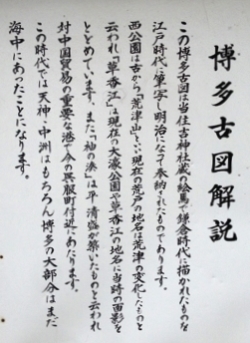 博多古図解説
この博多古図は当住吉神社蔵の絵馬で鎌倉時代に描かれたものを
江戸時代に重写し明治になって奉納されたものであります。
西公園は古から「荒津山」といい現在の荒戸の地名は荒津の変化したものと
云われ「草香江」は現在の大濠公園や草香江の地名に当時の面影を
とどめています。また「袖の湊」は平清盛が築いたものと云われ
対中国貿易の重要な港で今の呉服町付近にあたります。
この時代では天神・中洲はもちろん博多の大部分はまだ
海中にあったことになります。